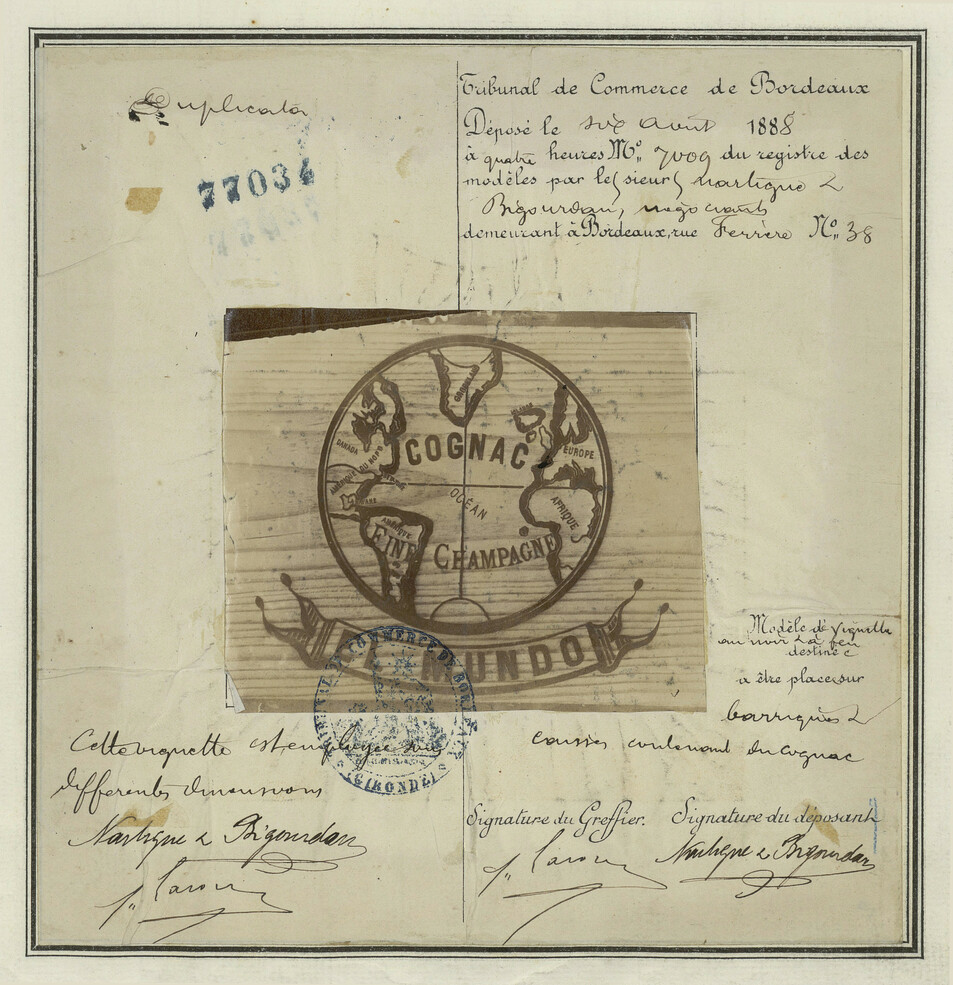 Duplicata
77034
Tribunal de Commerce de Bordeaux
Déposé le six Août 1888
à quatre heures No. 7009 du registre des
modèles par le sieur Nartigue &
Bigourdan, négociants
demeurant à Bordeaux, rue Ferrère No. 38
GROENLAND
COGNAC
CANADA
AMÉRIQUE DU NORD
EUROPE
OCÉAN
AFRIQUE
AMÉRIQUE
FINE CHAMPAGNE
MUNDO
TRIBUNAL DE COMMERCE DE BORDEAUX
(GIRONDE)
Modèle de vignette
au noir ou à feu
destinée
à être place sur
barriques &
caisses contenant du cognac
Cette vignette est employée sous
différentes dimensions
Nartigue & Bigourdan
Signature du Greffier. Signature du déposant
Nartigue & Bigourdan